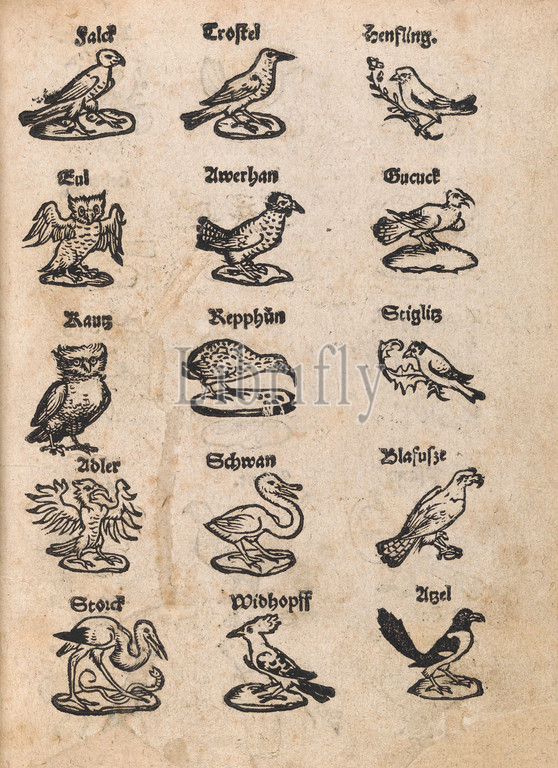 Falck
Trostel
Henfling.
Eul
Awerhan
Gucuck
Kautz
Repphůn
Stiglitz
Librifly
Adler
Schwan
Blafusze
Storck
Widhopff
Atzel